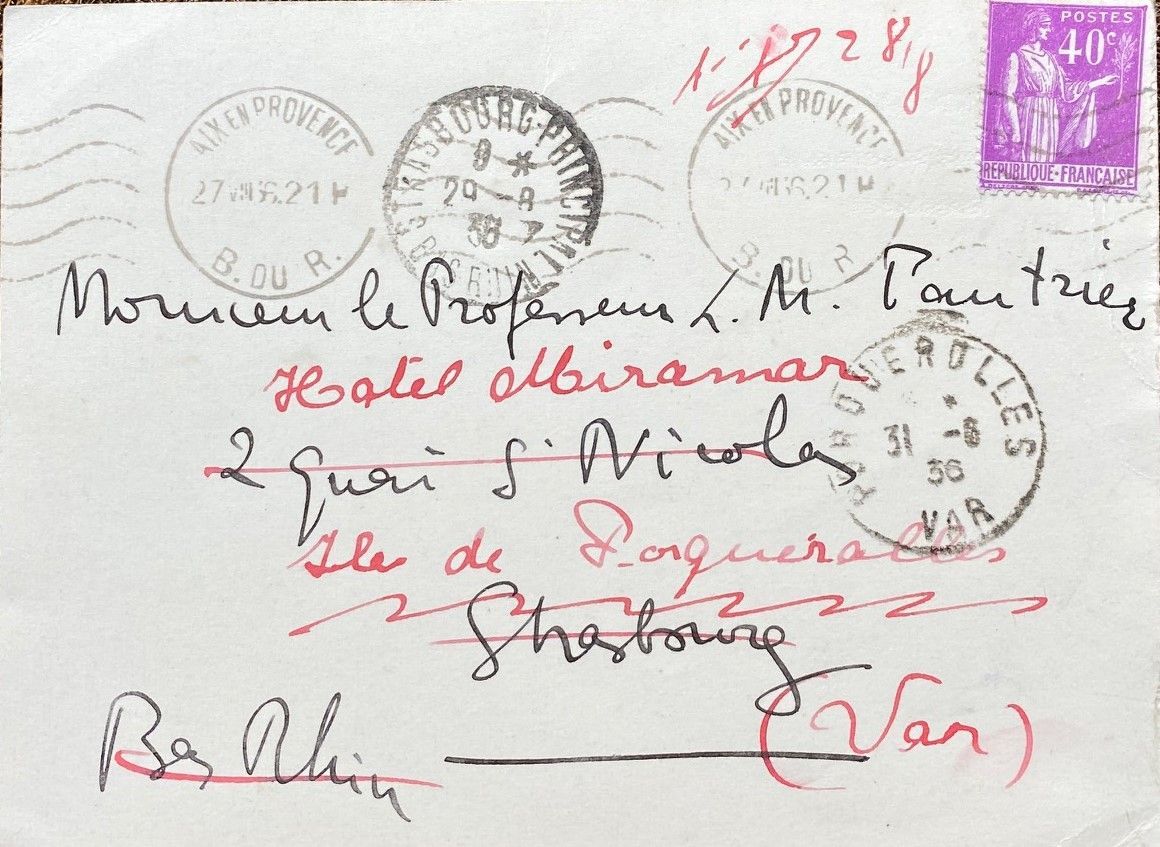 28/8
POSTES
40c
REPUBLIQUE-FRANCAISE
AIX EN PROVENCE
27 VIII 36.21H
B. DU R.
STRASBOURG-PRINCIPAL
29 -8
36
BAS RHIN
AIX EN PROVENCE
27 VIII 36.21H
B. DU R.
Monsieur le Professeur L. M. Tautriez
Hôtel Miramar
2 Quai St Nicolas
PORQUEROLLES
31 -8
36
VAR
Ile de Porquerolles
Strasbourg
Bas Rhin
(Var)